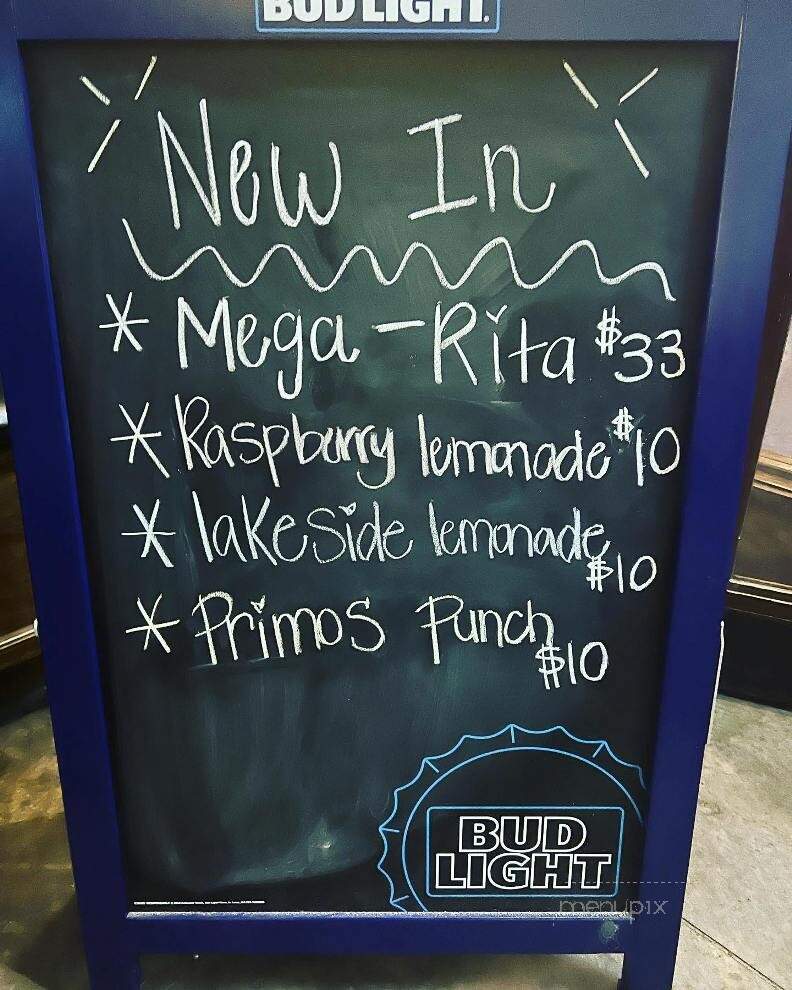 BUD LIGHT.
New In
* Mega-Rita $33
* Raspburry lemonade $10
* lakeside lemonade $10
* Primos Punch $10
BUD
LIGHT
menupix